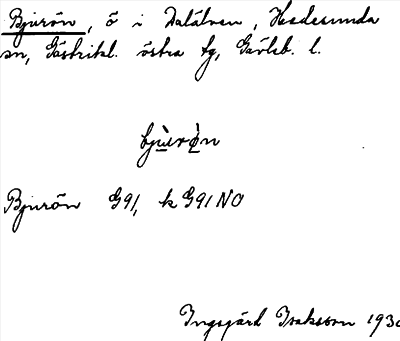 Bjurön, ö i Dalälven, Hedesunda
sn, Gästrikl. östra tg, Gävleb. l.
bjùrö̀n
Bjurön G91, k G91 NO
Ingegärd Isaksson 1930